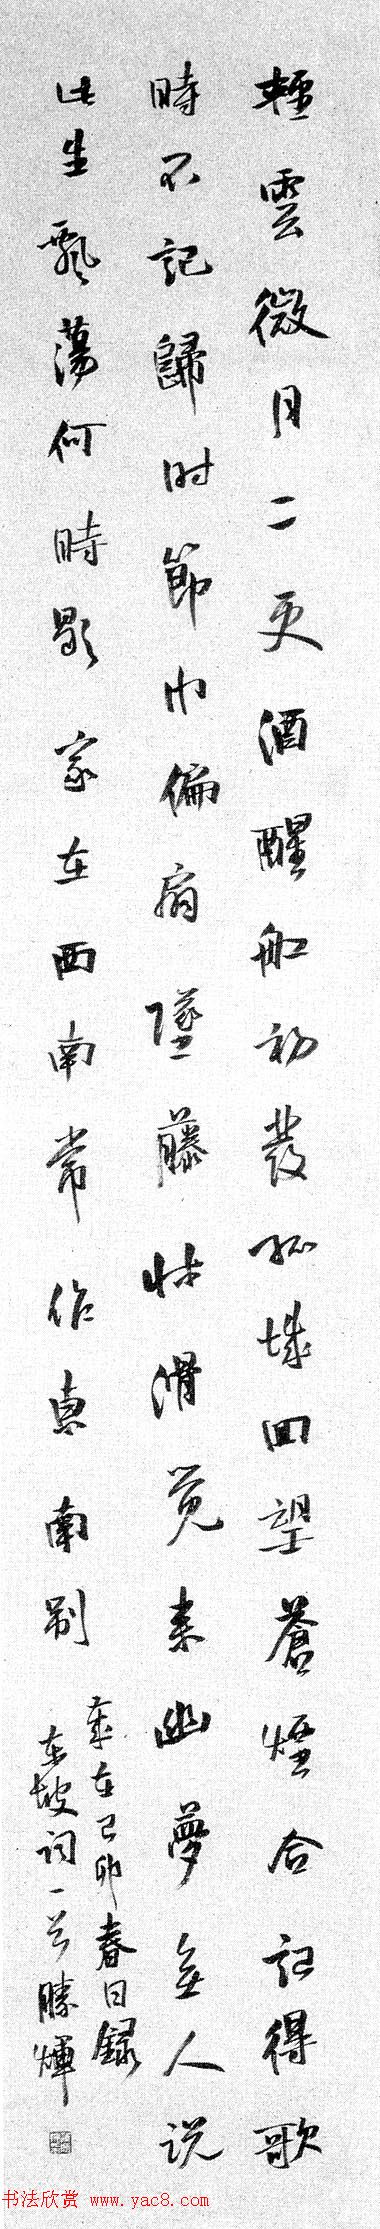 輕雲微月二更酒醒船初發孤城回望蒼煙合記得歌
時不記歸时節巾偏扇墜藤牀滑觉来幽夢無人说
此生飄蕩何時歇家在西南常作東南别
歲在己卯春日錄
東坡词一首勝煇
书法欣赏 www.yac8.com